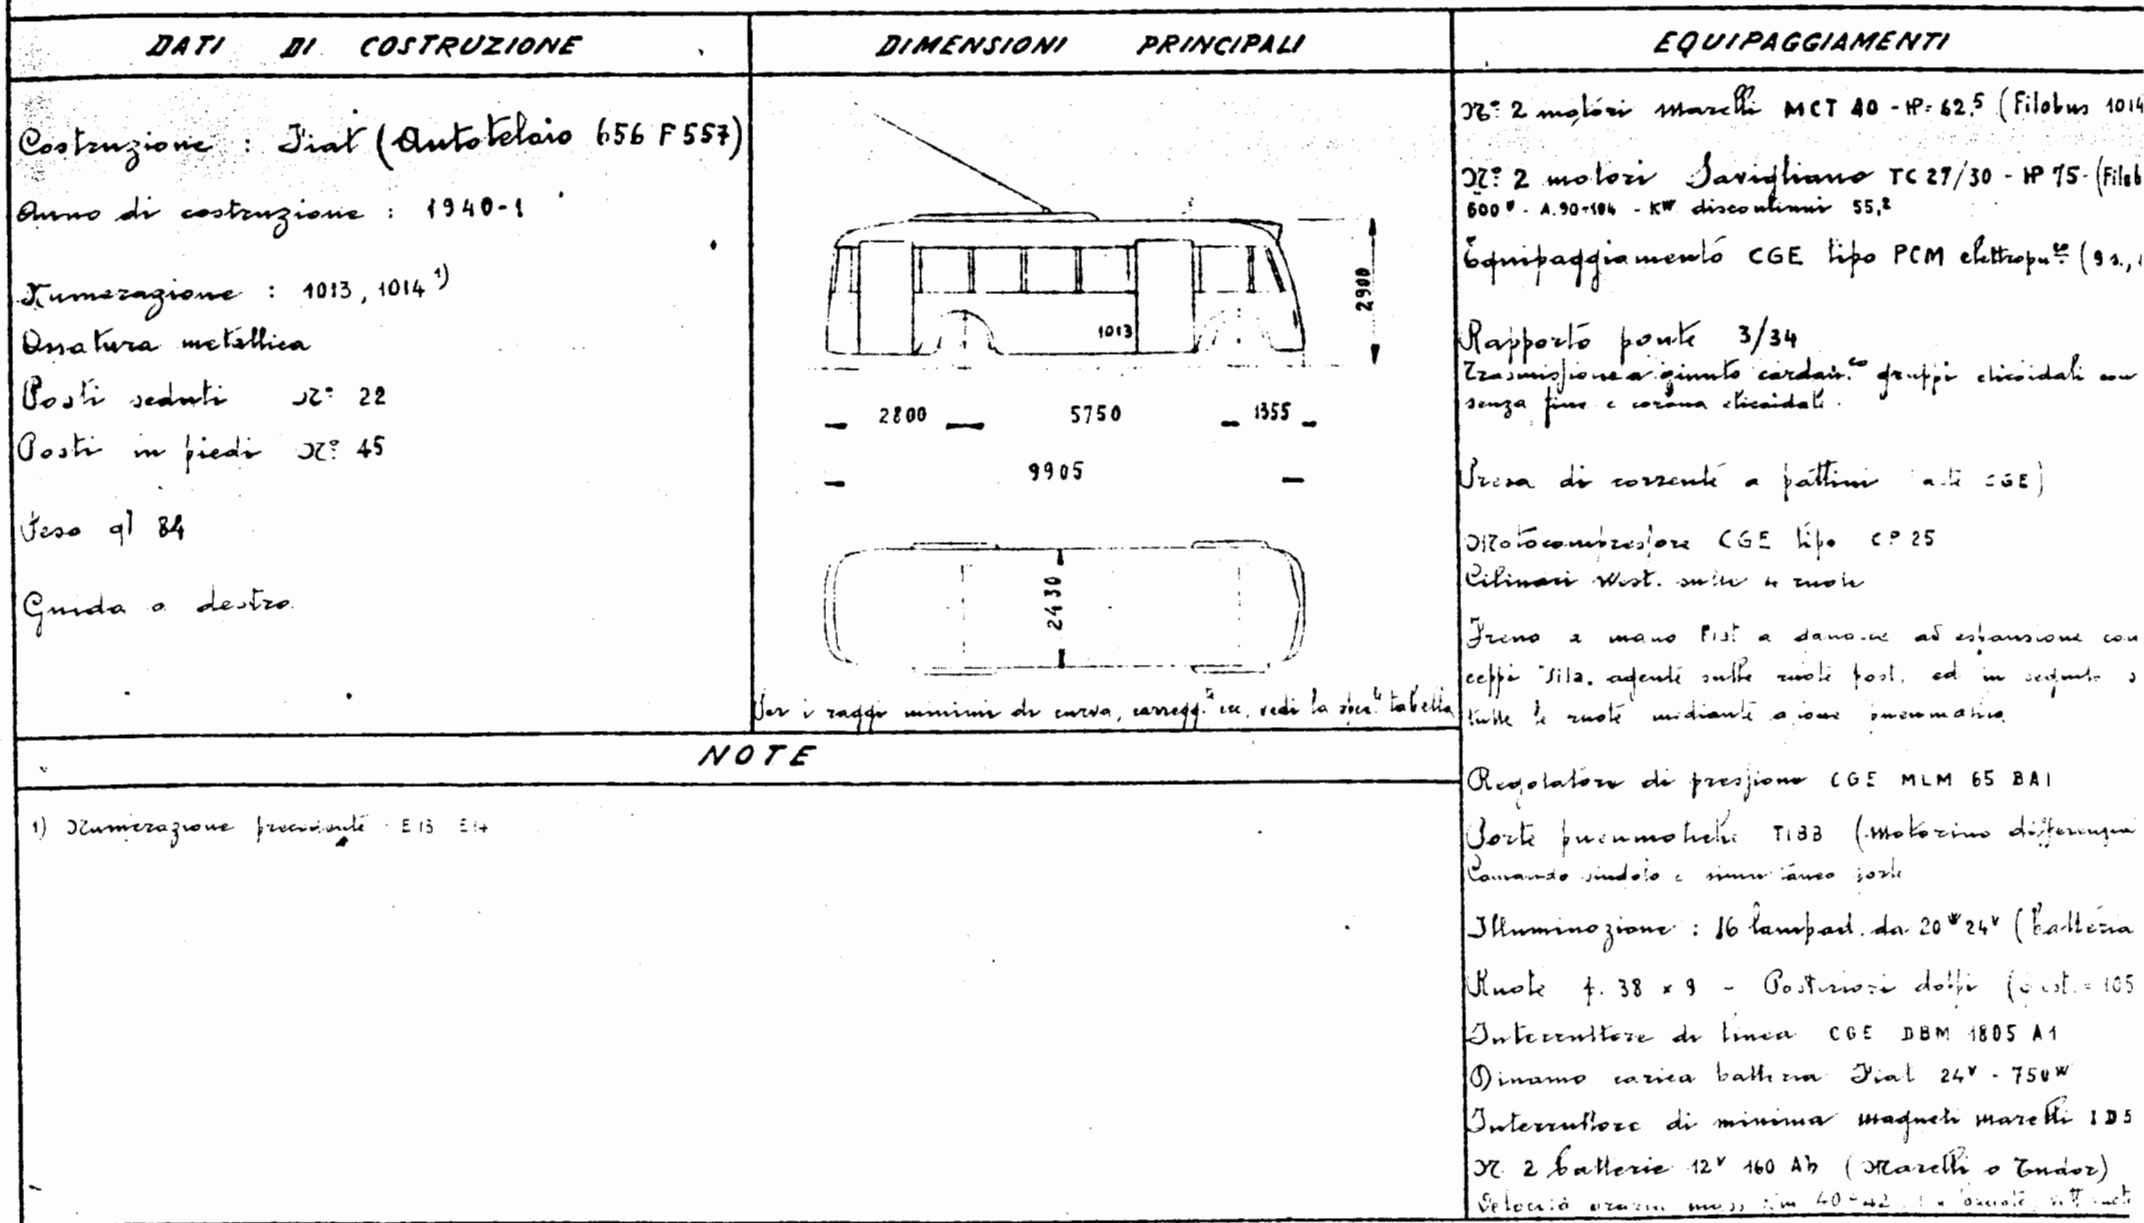 DATI DI COSTRUZIONE
Costruzione : Fiat (Autotelaio 656 F 557)
Anno di costruzione : 1940-1
Numerazione : 1013, 1014 1)
Ossatura metallica
Posti seduti N° 22
Posti in piedi N° 45
Peso ql 84
Guida a destra
DIMENSIONI PRINCIPALI
2900
1013
2800 5750 1355
9905
2430
Per i raggi minimi di curva, carregg.te ecc, vedi la spec.le tabella
EQUIPAGGIAMENTI
N° 2 motori Marelli MCT 40 - HP= 62,5 (Filobus 1014
N° 2 motori Savigliano TC 27/30 - HP 75 - (Filob
600 V - A. 90-104 - KW discontinui 55,2
Equipaggiamento CGE tipo PCM elettropn.co (9 s.,
Rapporto ponte 3/34
Trasmissione a giunto cardan.co gruppi elicoidali con
senza fine e corona elicoidale.
Presa di corrente a pattini aste CGE)
Motocompressore CGE tipo CP 25
Cilindri West. sulle 4 ruote
Freno a mano Fiat a ad espansione con
ceppi agente sulle ruote post. ed in seguito s
tutte le ruote mediante azione pneumatica
Regolatore di pressione CGE MLM 65 BA1
Porte pneumatiche TIBB (Motorino differenzia
Comando singolo e simultaneo porte
Illuminazione : 16 lampad. da 20 W 24 V (batteria
Ruote f. 38 x 9 - Posteriori doppi 105
Interruttore di linea CGE DBM 1805 A1
Dinamo carica batteria Fiat 24 V - 750 W
Interruttore di minima Magneti Marelli ID5
N. 2 batterie 12 V 160 Ah (Marelli o Tudor)
Velocità oraria mass. Km 40-42
NOTE
1) Numerazione precedente E 13 E 14